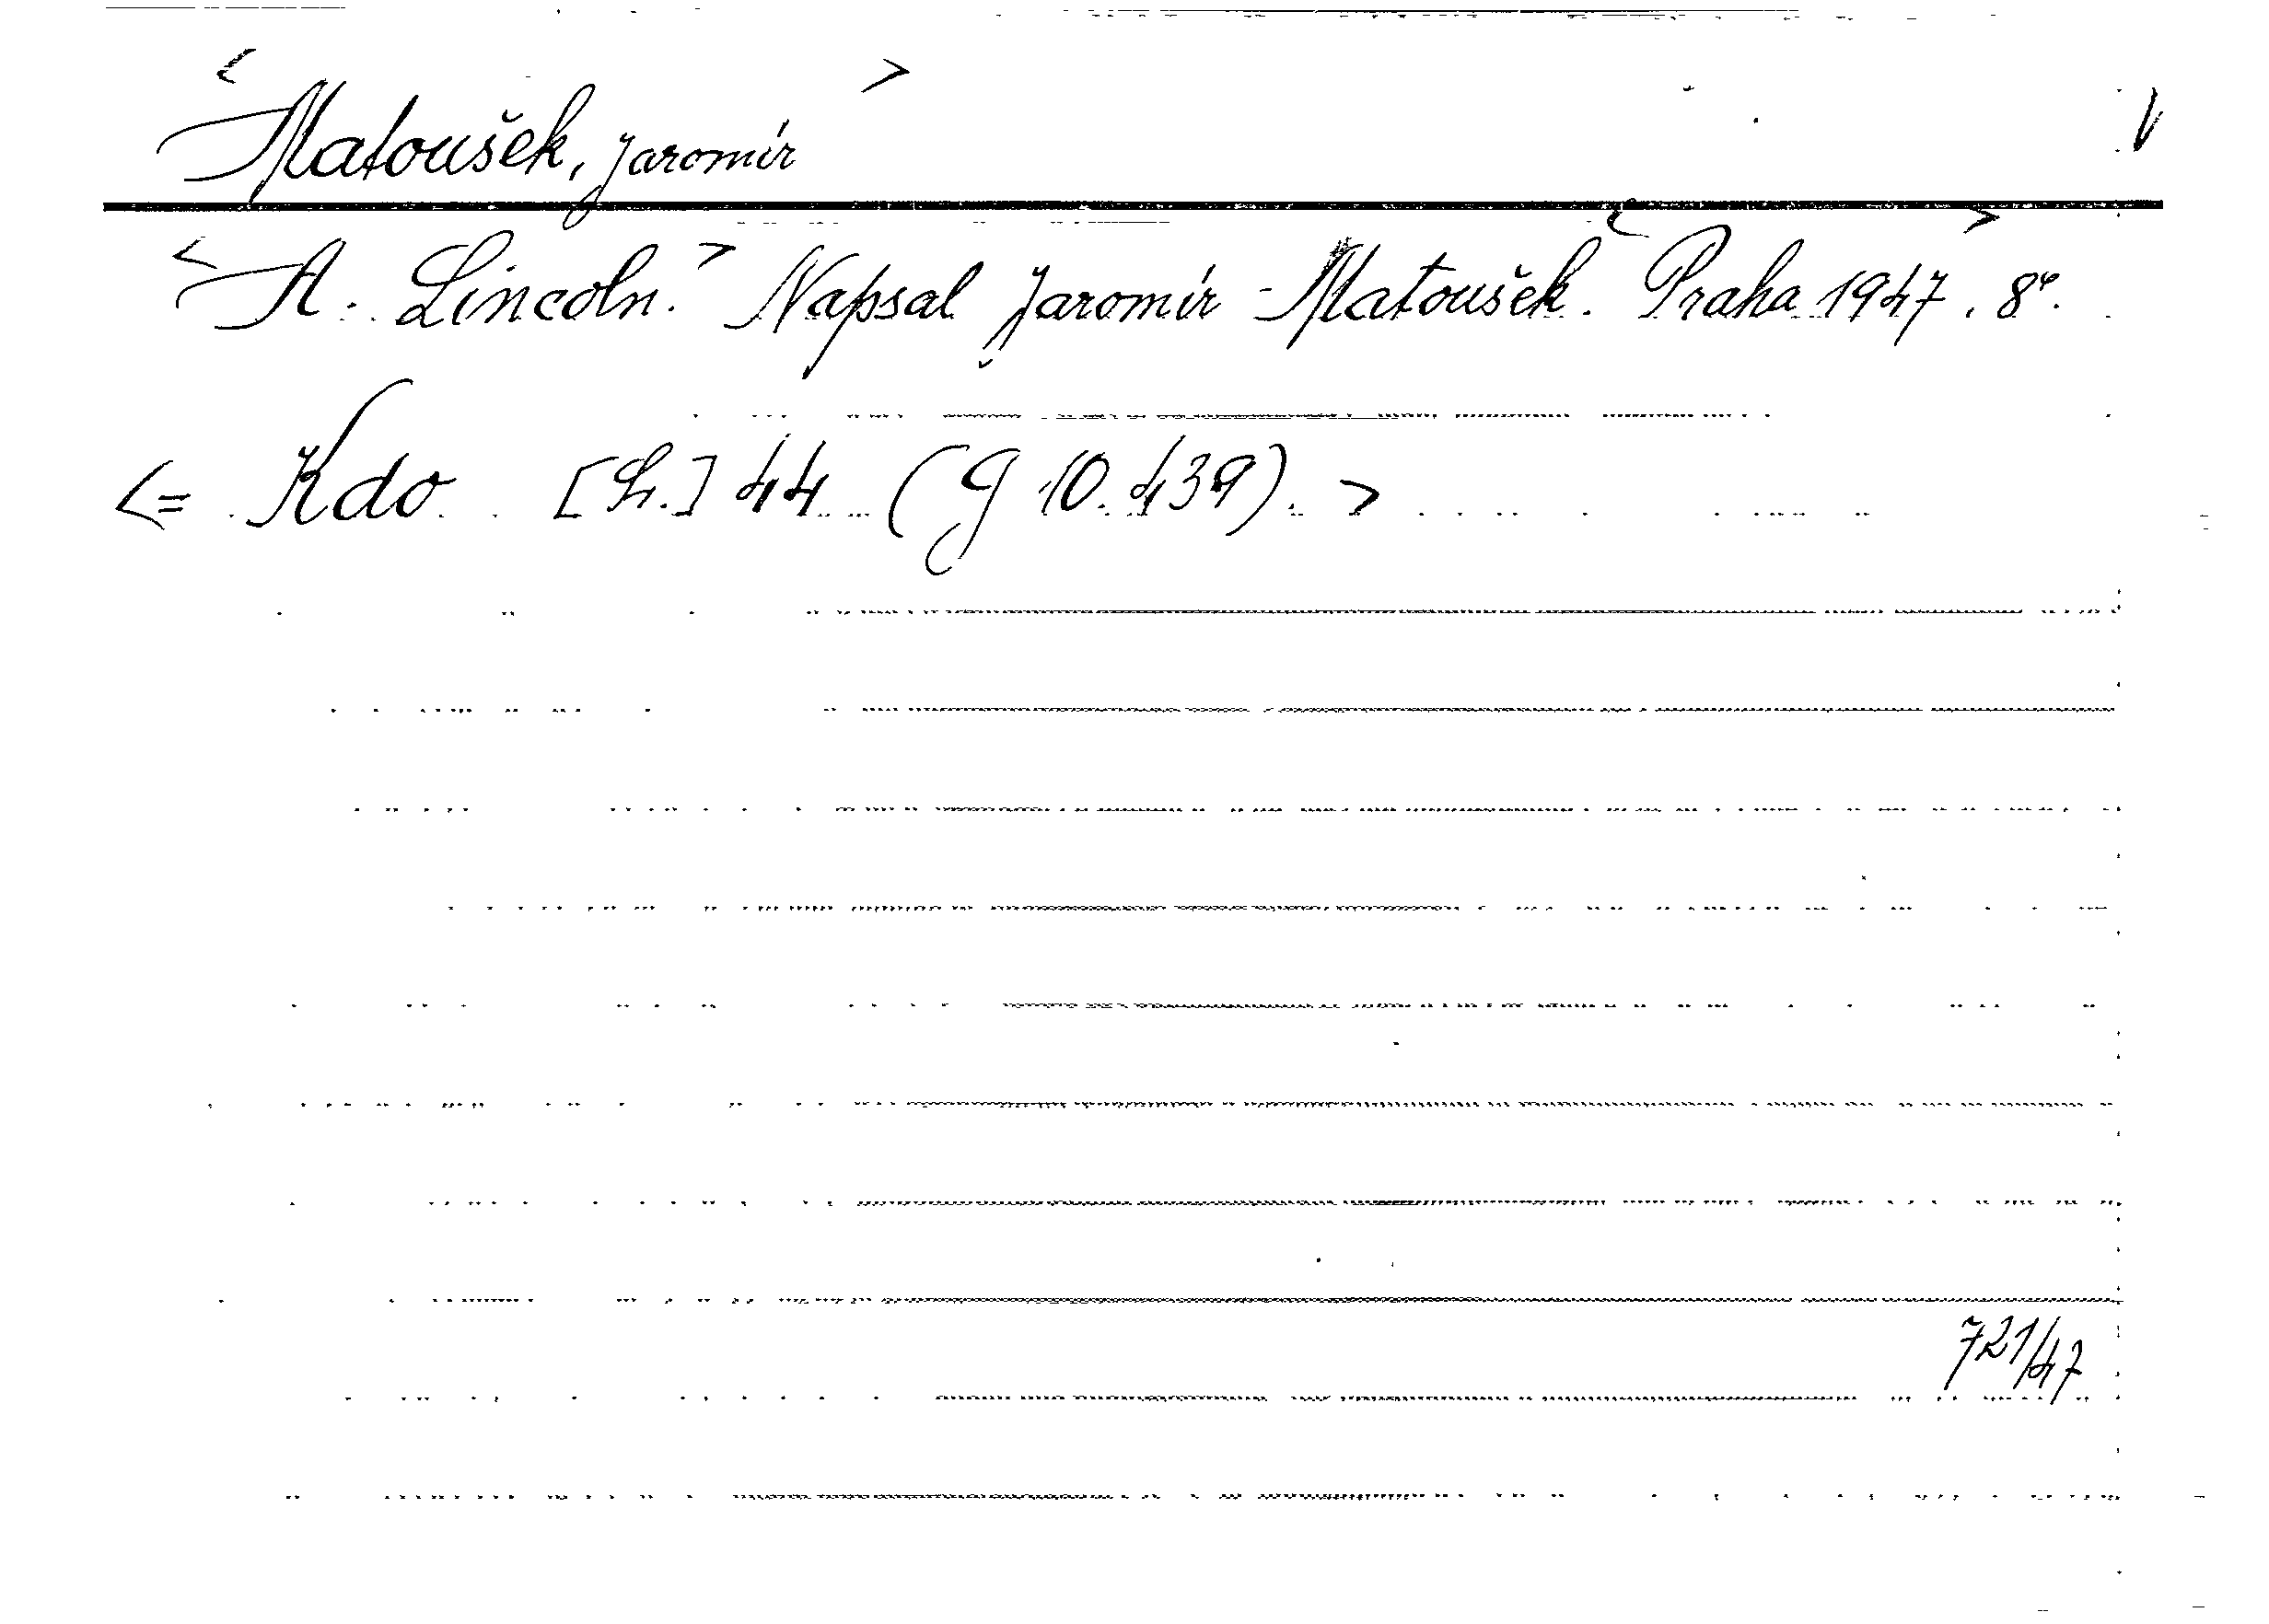 <Matoušek, Jaromír>
<A. Lincoln.> Napsal Jaromír Matoušek. <Praha 1947>. 8°.
<= Kdo [Sv.] 44 (G 10.439).>
721/47